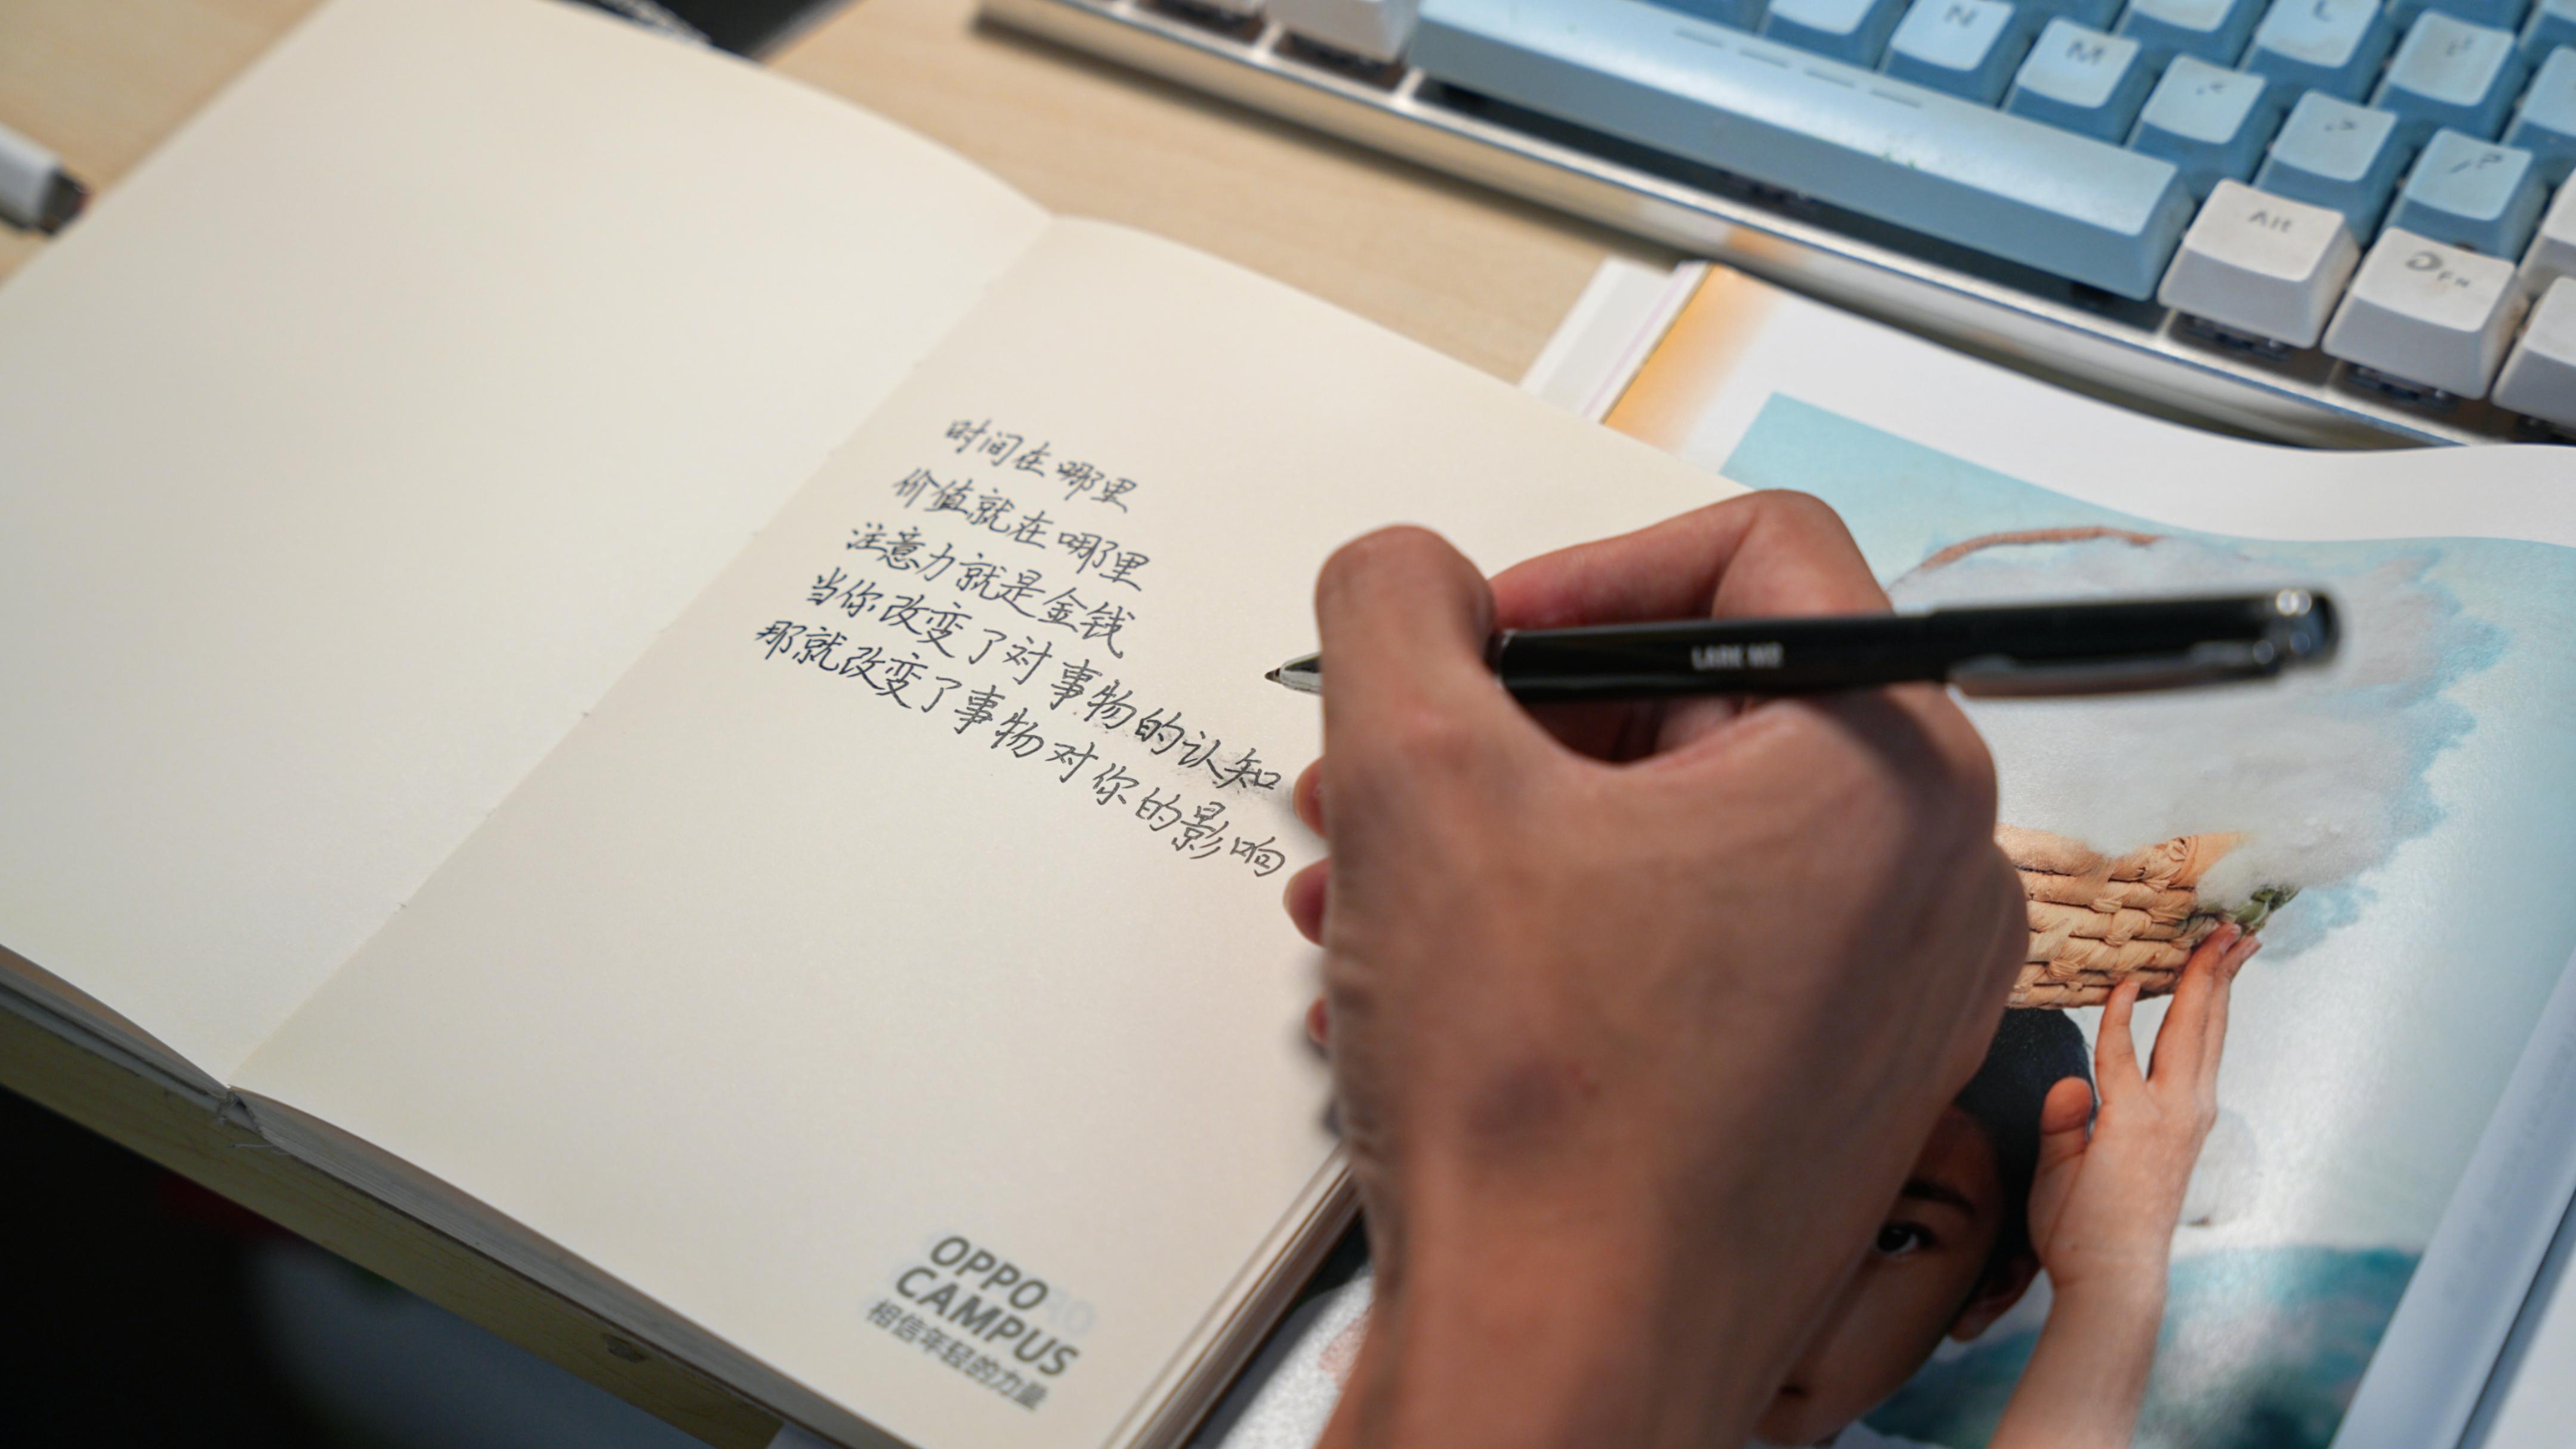 时间在哪里
价值就在哪里
注意力就是金钱
当你改变了对事物的认知
那就改变了事物对你的影响
OPPO
CAMPUS
相信年轻的力量
N
M
Alt